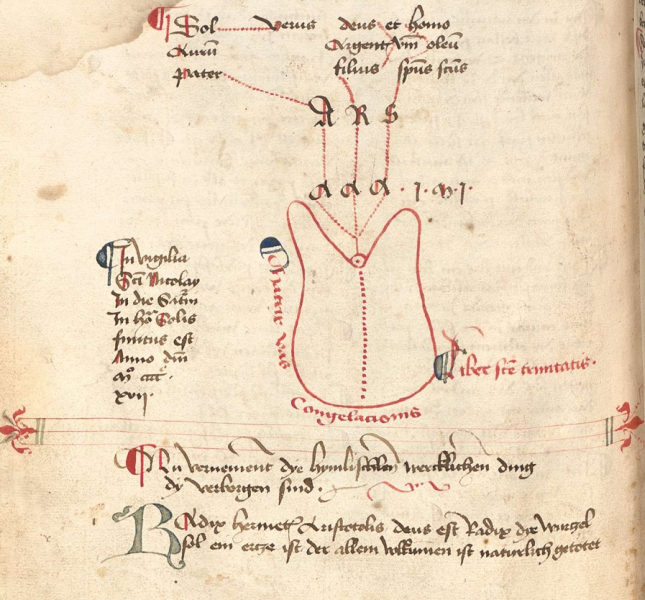 Sol verus deus et homo
Aurū Argent vm oleū
pater filius spūs scūs
A R S
a a a · J · M · J ·
In vigilia
Sci Nicolay
In die Satni
In ho Solis
finitus est
Anno dni
mo cccc
xvij
matrix vas
Congelacionis
Liber scē trinitatis
Nu vernement dye hymlischen wercklichen ding
dy verborgen sind
Radix hermet Aristotelis deus est Radix die wurgel
sol ein ercze ist der allem volkumen ist naturlich getotet